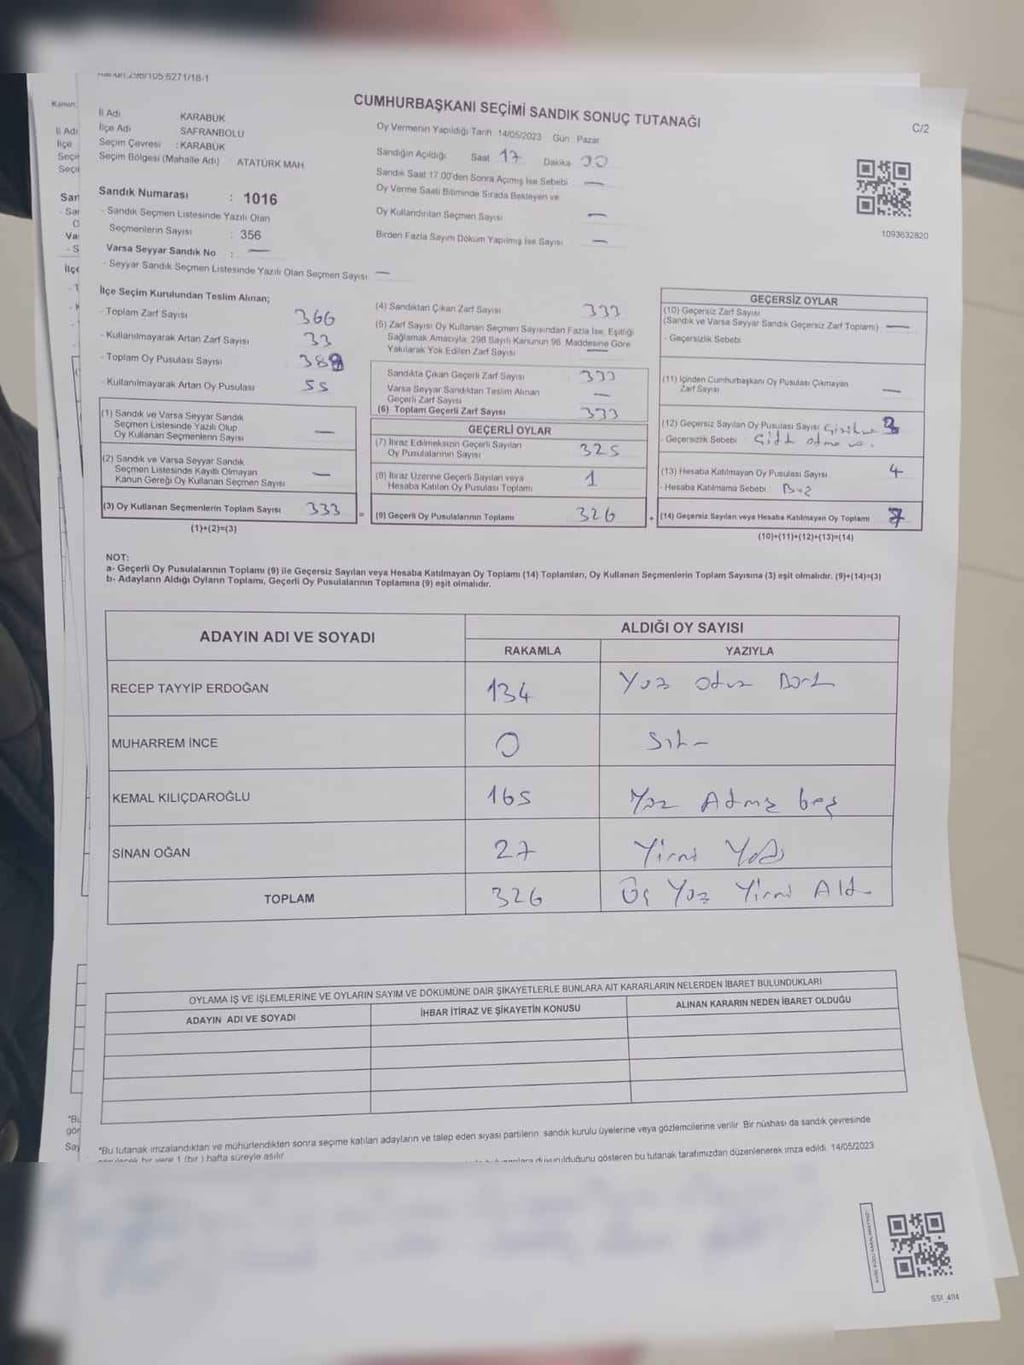 CUMHURBAŞKANI SEÇİMİ SANDIK SONUÇ TUTANAĞI
C/2
İl Adı KARABÜK
İlçe Adı SAFRANBOLU
Seçim Çevresi : KARABÜK
Seçim Bölgesi (Mahalle Adı) : ATATÜRK MAH.
Sandık Numarası : 1016
- Sandık Seçmen Listesinde Yazılı Olan
Seçmenlerin Sayısı : 356
Varsa Seyyar Sandık No : —
- Seyyar Sandık Seçmen Listesinde Yazılı Olan Seçmen Sayısı : —
Oy Vermenin Yapıldığı Tarih 14/05/2023 Gün : Pazar
Sandığın Açıldığı Saat 17 Dakika 00
Sandık Saat 17.00'den Sonra Açımış İse Sebebi : —
Oy Verme Saati Bitiminde Sırada Bekleyen ve
Oy Kullandırılan Seçmen Sayısı —
Birden Fazla Sayım Döküm Yapılmış İse Sayısı —
1093632820
İlçe Seçim Kurulundan Teslim Alınan;
- Toplam Zarf Sayısı 366
- Kullanılmayarak Artan Zarf Sayısı 33
- Toplam Oy Pusulası Sayısı
- Kullanılmayarak Artan Oy Pusulası 55
(1) Sandık ve Varsa Seyyar Sandık
Seçmen Listesinde Yazılı Olup
Oy Kullanan Seçmenlerin Sayısı —
(2) Sandık ve Varsa Seyyar Sandık
Seçmen Listesinde Kayıtlı Olmayan
Kanun Gereği Oy Kullanan Seçmen Sayısı —
(3) Oy Kullanan Seçmenlerin Toplam Sayısı 333
(1)+(2)=(3)
(4) Sandıktan Çıkan Zarf Sayısı 333
(5) Zarf Sayısı Oy Kullanan Seçmen Sayısından Fazla İse, Eşitliği
Sağlamak Amacıyla, 298 Sayılı Kanunun 98. Maddesine Göre
Yakılarak Yok Edilen Zarf Sayısı —
Sandıkta Çıkan Geçerli Zarf Sayısı 333
Varsa Seyyar Sandıktan Teslim Alınan
Geçerli Zarf Sayısı —
(6) Toplam Geçerli Zarf Sayısı 333
GEÇERLİ OYLAR
(7) İtiraz Edilmeksizin Geçerli Sayılan
Oy Pusulalarının Sayısı 325
(8) İtiraz Üzerine Geçerli Sayılan veya
Hesaba Katılan Oy Pusulası Toplamı 1
(9) Geçerli Oy Pusulalarının Toplamı 326
GEÇERSİZ OYLAR
(10) Geçersiz Zarf Sayısı
(Sandık ve Varsa Seyyar Sandık Geçersiz Zarf Toplamı) —
- Geçersizlik Sebebi
(11) İçinden Cumhurbaşkanı Oy Pusulası Çıkmayan
Zarf Sayısı —
(12) Geçersiz Sayılan Oy Pusulası Sayısı 3
- Geçersizlik Sebebi :
(13) Hesaba Katılmayan Oy Pusulası Sayısı 4
- Hesaba Katılmama Sebebi :
(14) Geçersiz Sayılan veya Hesaba Katılmayan Oy Toplamı 7
(10)+(11)+(12)+(13)=(14)
NOT:
a- Geçerli Oy Pusulalarının Toplamı (9) ile Geçersiz Sayılan veya Hesaba Katılmayan Oy Toplamı (14) Toplamları, Oy Kullanan Seçmenlerin Toplam Sayısına (3) eşit olmalıdır. (9)+(14)=(3)
b- Adayların Aldığı Oyların Toplamı, Geçerli Oy Pusulalarının Toplamına (9) eşit olmalıdır.
ADAYIN ADI VE SOYADI
ALDIĞI OY SAYISI
RAKAMLA YAZIYLA
RECEP TAYYİP ERDOĞAN 134 Yüz Otuz Dört
MUHARREM İNCE 0 Sıfır
KEMAL KILIÇDAROĞLU 165 Yüz Atmış beş
SİNAN OĞAN 27 Yirmi Yedi
TOPLAM 326 Üç Yüz Yirmi Altı
OYLAMA İŞ VE İŞLEMLERİNE VE OYLARIN SAYIM VE DÖKÜMÜNE DAİR ŞİKAYETLERLE BUNLARA AİT KARARLARIN NELERDEN İBARET BULUNDUKLARI
ADAYIN ADI VE SOYADI İHBAR İTİRAZ VE ŞİKAYETİN KONUSU ALINAN KARARIN NEDEN İBARET OLDUĞU
*Bu tutanak imzalandıktan ve mühürlendikten sonra seçime katılan adayların ve talep eden siyasi partilerin sandık kurulu üyelerine veya gözlemcilerine verilir. Bir nüshası da sandık çevresinde
bir yere 1 (bir) hafta süreyle asılır.
duyurulduğunu gösteren bu tutanak tarafımızdan düzenlenerek imza edildi. 14/05/2023